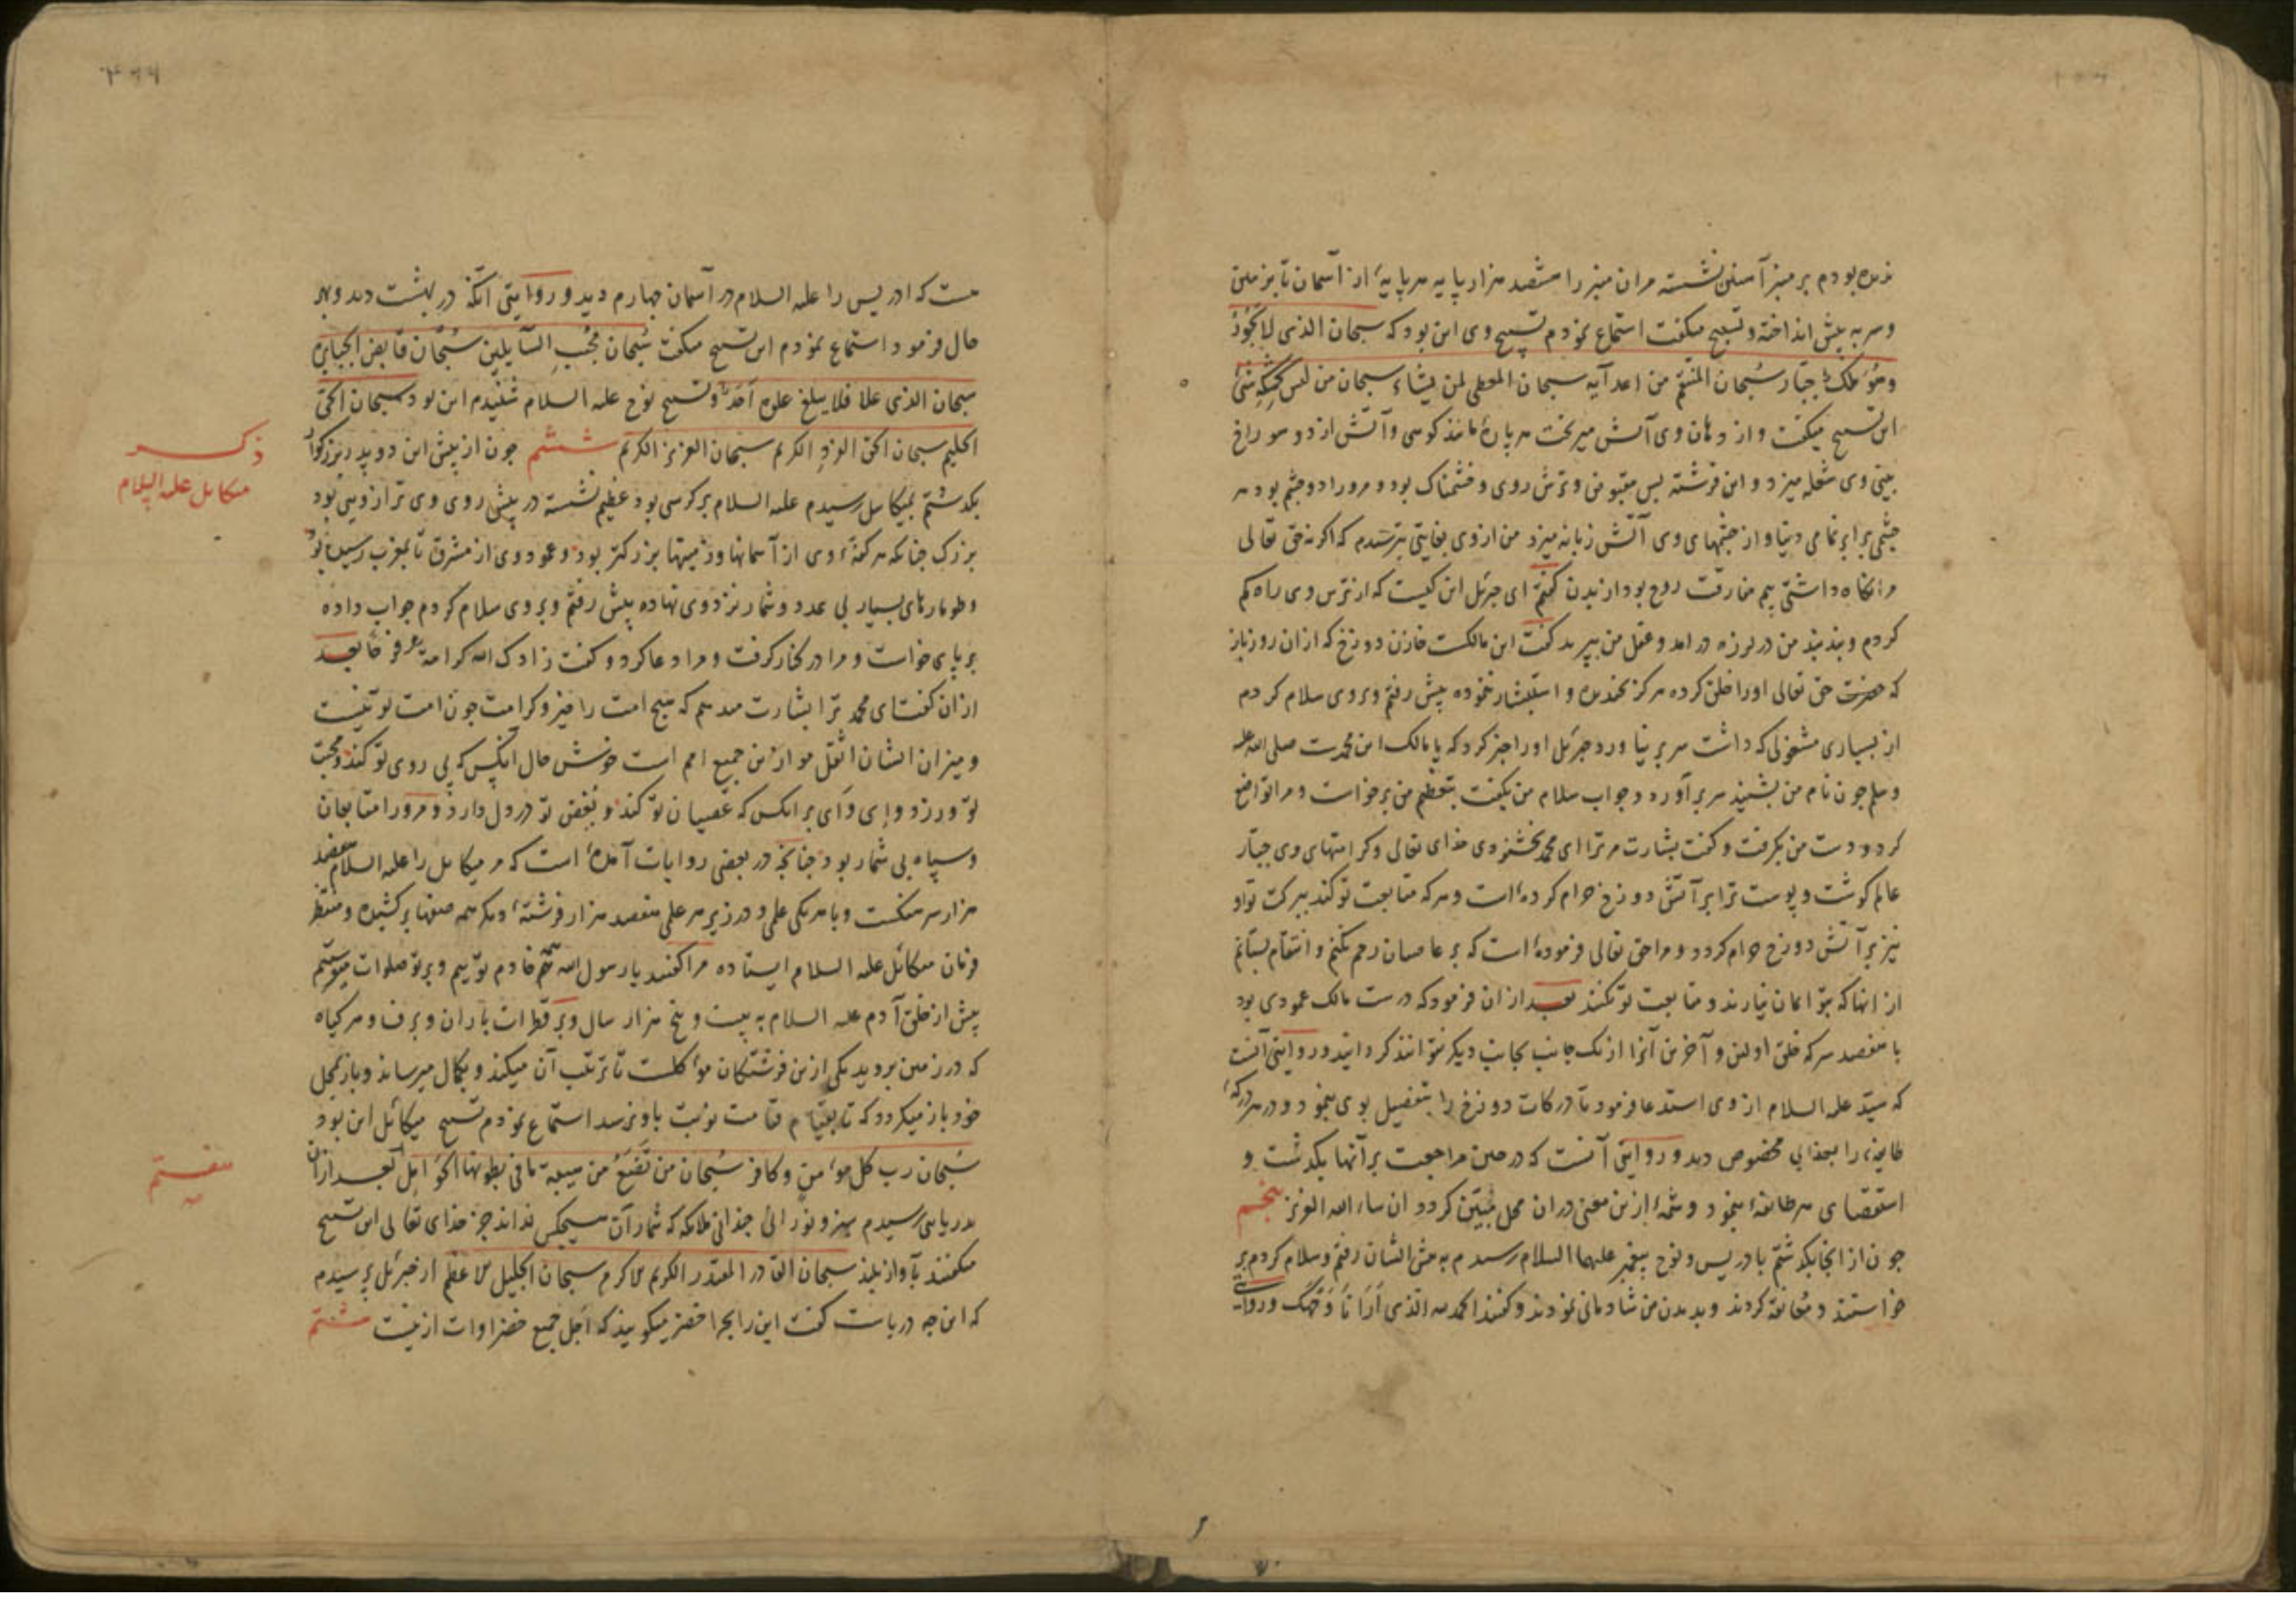 ندیده بودم بر منبر آتشین نشسته مر آن منبر را ششصد هزار پایه هر پایهٔ از آسمان تا بزمین
و سر به پیش انداخته و تسبیح میگفت استماع نمودم تسبیح وی این بود که سبحان الذی لا یجور
وهو ملک جبار سبحان المنتقم من اعدآیه سبحان المعطی لمن یشاء سبحان من لیس کمثله شیٔ
این تسبیح میگفت و از دهان وی آتش میریخت هر پارهٔ مانند کوهی و آتش از دو سوراخ
بینی وی شعله میزد و این فرشته بس مقبوض و ترش روی و خشمناک بود و مرورا دو چشم بود هر
چشمی برابر تمامی دنیا و از چشمهای وی آتش زبانه میزد من از وی بغایتی بترسیدم که اگر نه حق تعالی
مرا نگاه داشتی بیم مفارقت روح بود از بدن گفتم ای جبرئیل این کیست که از ترس وی راه گم
کردم و بند بند من در لرزه در آمد و عقل من بپرید گفت این مالکست خازن دوزخ که از ان روز باز
که حضرت حق تعالی او را خلق کرده هرگز نخندیده و استبشار ننموده پیش رفتم و بر وی سلام کردم
از بسیاری مشغولی که داشت سر بر نیاورد جبرئیل او را خبر کرد که یا مالک این محمدست صلی الله علیه
و سلم چون نام من بشنید سر بر آورد و جواب سلام من بگفت بتعظیم من برخواست و مرا تواضع
کرد و دست من بگرفت و گفت بشارت مر ترا ای محمد بخشنودی خدای تعالی و کرامتهای وی جبار
عالم گوشت و پوست ترا بر آتش دوزخ حرام کرده است و هر که متابعت تو کند ببرکت تو او
نیز بر آتش دوزخ حرام کردد و مرا حق تعالی فرموده است که بر عاصیان رحم نکنم و انتقام بستانم
از انها که بتو ایمان نیارند و متابعت تو نکنند بعد از ان فرمود که در دست مالک عمودی بود
با هفصد سر که خلق اولین و آخرین آنرا از یک جانب بجانب دیگر نتوانند گردانید و روایتی آنست
که سید علیه السلام از وی استدعا فرمود تا درکات دوزخ را بتفصیل بوی بنمود و در هر درکهٔ
طایفهٔ را بعذابی مخصوص دید و روایتی آنست که در حین مراجعت بر آنها بگذشت و
استقصای هر طایفهٔ بنمود و شمهٔ ازین معنی در ان محل مبین گردد ان شاء الله العزیز پنجم
چون از انجا بگذشتم با دریس و نوح پیغمبر علیهما السلام رسیدم به پیش ایشان رفتم و سلام کردم بر
خواستند و معانقه کردند و بدیدن من شادمانی نمودند و گفتند الحمد لله الذی ارانا وجهک و روایتی
هست که ادریس را علیه السلام در آسمان چهارم دید و روایتی آنکه در بهشت دید و بهر
حال فرمود استماع نمودم این تسبیح میگفت سبحان مجیب السآیلین سبحان قابض الجبابره
سبحان الذی علا فلا یبلغ علوه احد و تسبیح نوح علیه السلام شنیدم این بود سبحان الحی
الحلیم سبحان الحی الفرد الکریم سبحان العزیز الکریم ششم چون از پیش این دو پدر بزرگوار
بگذشتم بمیکاییل رسیدم علیه السلام بر کرسی بود عظیم نشسته در پیش روی وی ترازویی بود
بزرگ چنانکه هر کفهٔ وی از آسمانها و زمینها بزرگتر بود و عمود وی از مشرق تا بمغرب رسیده بود
و طومارهای بسیار بی عدد و شمار نزد وی نهاده پیش رفتم و بر وی سلام کردم جواب داده
بر پای خواست و مرا در کنار گرفت و مرا دعا کرد و گفت زادک الله کرامة و فرحا بعد
از ان گفت ای محمد ترا بشارت میدهم که هیچ امت را خیر و کرامت چون امت تو نیست
و میزان ایشان اثقل موازین جمیع امم است خوش حال آنکس که پی روی تو کند و محبت
تو ورزد و ای وای بر انکس که عصیان تو کند و بغض تو در دل دارد و مرورا متابعان
و سپاه بی شمار بود چنانچه در بعضی روایات آمدهٔ است که مر میکاییل را علیه السلام هفصد
هزار سرهنگست و با هر یکی علمی و در زیر هر علمی هفصد هزار فرشتهٔ دیگر همه صفها برکشیده و منتظر
فرمان میکائیل علیه السلام ایستاده مرا گفتند یا رسول الله همه خادم توییم و بر تو صلوات میفرستیم
پیش از خلق آدم علیه السلام به بیست و پنج هزار سال و بر قطرات باران و برف و هر گیاه
که در زمین بروید یکی ازین فرشتگان موٴکلست تا ترتیب آن میکند و بکمال میرساند و باز بمحل
خود باز میگردد که تا بقیام قیامت نوبت باو نرسد استماع نمودم تسبیح میکائیل این بود
سبحان رب کل موٴمن و کافر سبحان من تضع من هیبته ما فی بطونها الحوامل بعد از آن
بدریایی رسیدم سبز و نورانی چندانی ملایکه که شمار آن هیچکس نداند جز خدای تعالی این تسبیح
میگفتند بآواز بلند سبحان القادر المقتدر الکریم الاکرم سبحان الجلیل الاعظم از جبرئیل پرسیدم
که این چه دریاست گفت این را بحر اخضر میگویند که اجل جمیع خضراوات ازینست هشتم
ذکر
میکاییل علیه السلام
هفتم